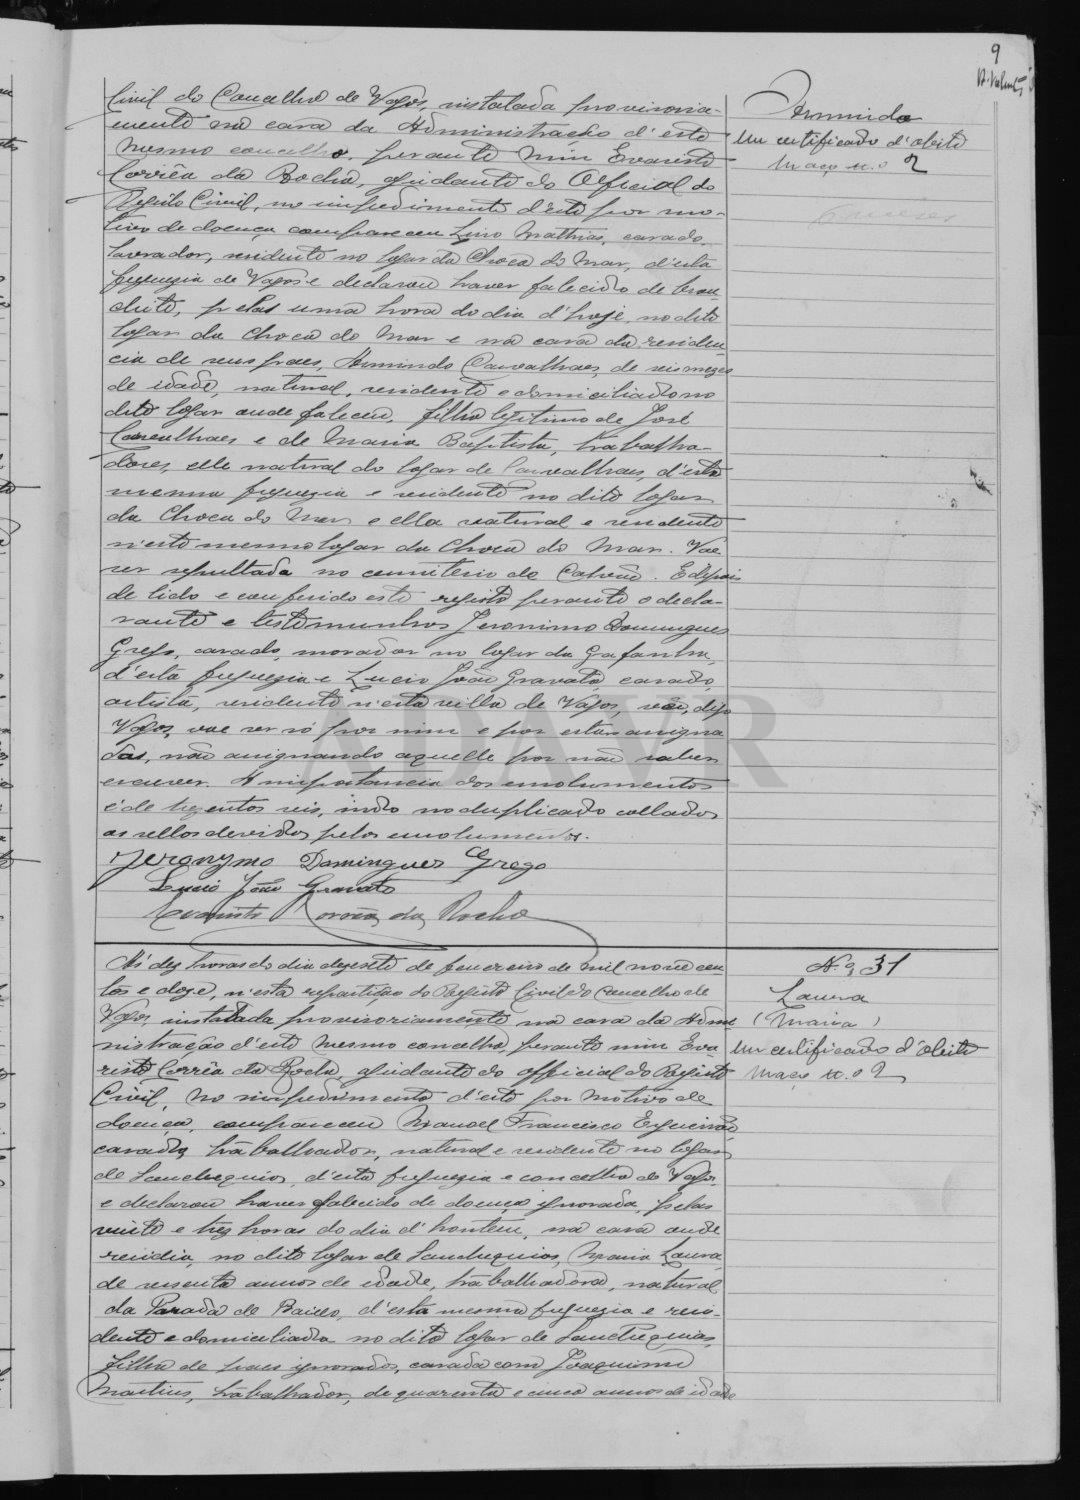 9
Civil do Concelho de Vagos, installada provisoria-
mente na casa da Administração d'este
mesmo concelho, perante mim Evaristo
Corrêa da Rocha, ajudante do Official do
Registo Civil, no impedimento d'este por mo-
tivo de doença compareceu Lino Mathias, casado,
lavrador, residente no logar da Choca do Mar, d'esta
freguezia de Vagos e declarou haver falecido de bron-
chite, pelas uma hora do dia d'hoje, no dito
logar da Choca do Mar e na casa da residen-
cia de seus paes, Armindo Carvalhaes, de seis mezes
de idade, natural, residente e domiciliado no
dito logar onde faleceu, filho legitimo de José
Carvalhaes e de Maria Baptista, trabalha-
dores, elle natural do logar de Carvalhaes, d'esta
mesma freguezia e residente no dito logar
da Choca do Mar e ella natural e residente
n'este mesmo logar da Choca do Mar. Vae
ser sepultada no cemiterio de Calvão. E depois
de lido e conferido este registo perante o decla-
rante e testemunhas Jeronimo Domingues
Grego, casado, morador no logar da Gafanha,
d'esta freguezia e Lucio João Gravato, casado,
artista, residente n'esta villa de Vagos, digo
Vagos, vae ser só por mim e por estas assigna
das, não assignando aquelle por não saber
escrever. A importancia dos emolumentos
é de trezentos reis, indo no duplicado collados
os sellos devidos pelos emolumentos.
Jeronymo Domingues Grego
Lucio João Gravato
Evaristo Corrêa da Rocha
Armindo
Um certificado d'obito
Maço n.º 2
Ás dez horas do dia dezesete de fevereiro de mil nove cen-
tos e doze, n'esta repartição do Registo Civil do Concelho de
Vagos, installada provisoriamente na casa da Admi-
nistração d'este mesmo concelho, perante mim Eva-
risto Corrêa da Rocha, ajudante do official do Registo
Civil, no impedimento d'este por motivo de
doença, compareceu Manoel Francisco Esgueirão,
casado, trabalhador, natural e residente no logar
de Sanchequias, d'esta freguezia e concelho de Vagos
e declarou haver falecido de doença ignorada, pelas
vinte e tres horas do dia d'hontem, na casa onde
residia, no dito logar de Sanchequias, Maria Laura,
de sesenta annos de idade, trabalhadora, natural
da Parada de Baixo, d'esta mesma freguezia e resi-
dente e domiciliada no dito logar de Sanchequias,
filha de paes ignorados, casada com Joaquim
Martins, trabalhador, de quarenta e cinco annos de idade
N.º 31
Laura
(Maria)
Um certificado d'obito
Maço n.º 2
ADAVR